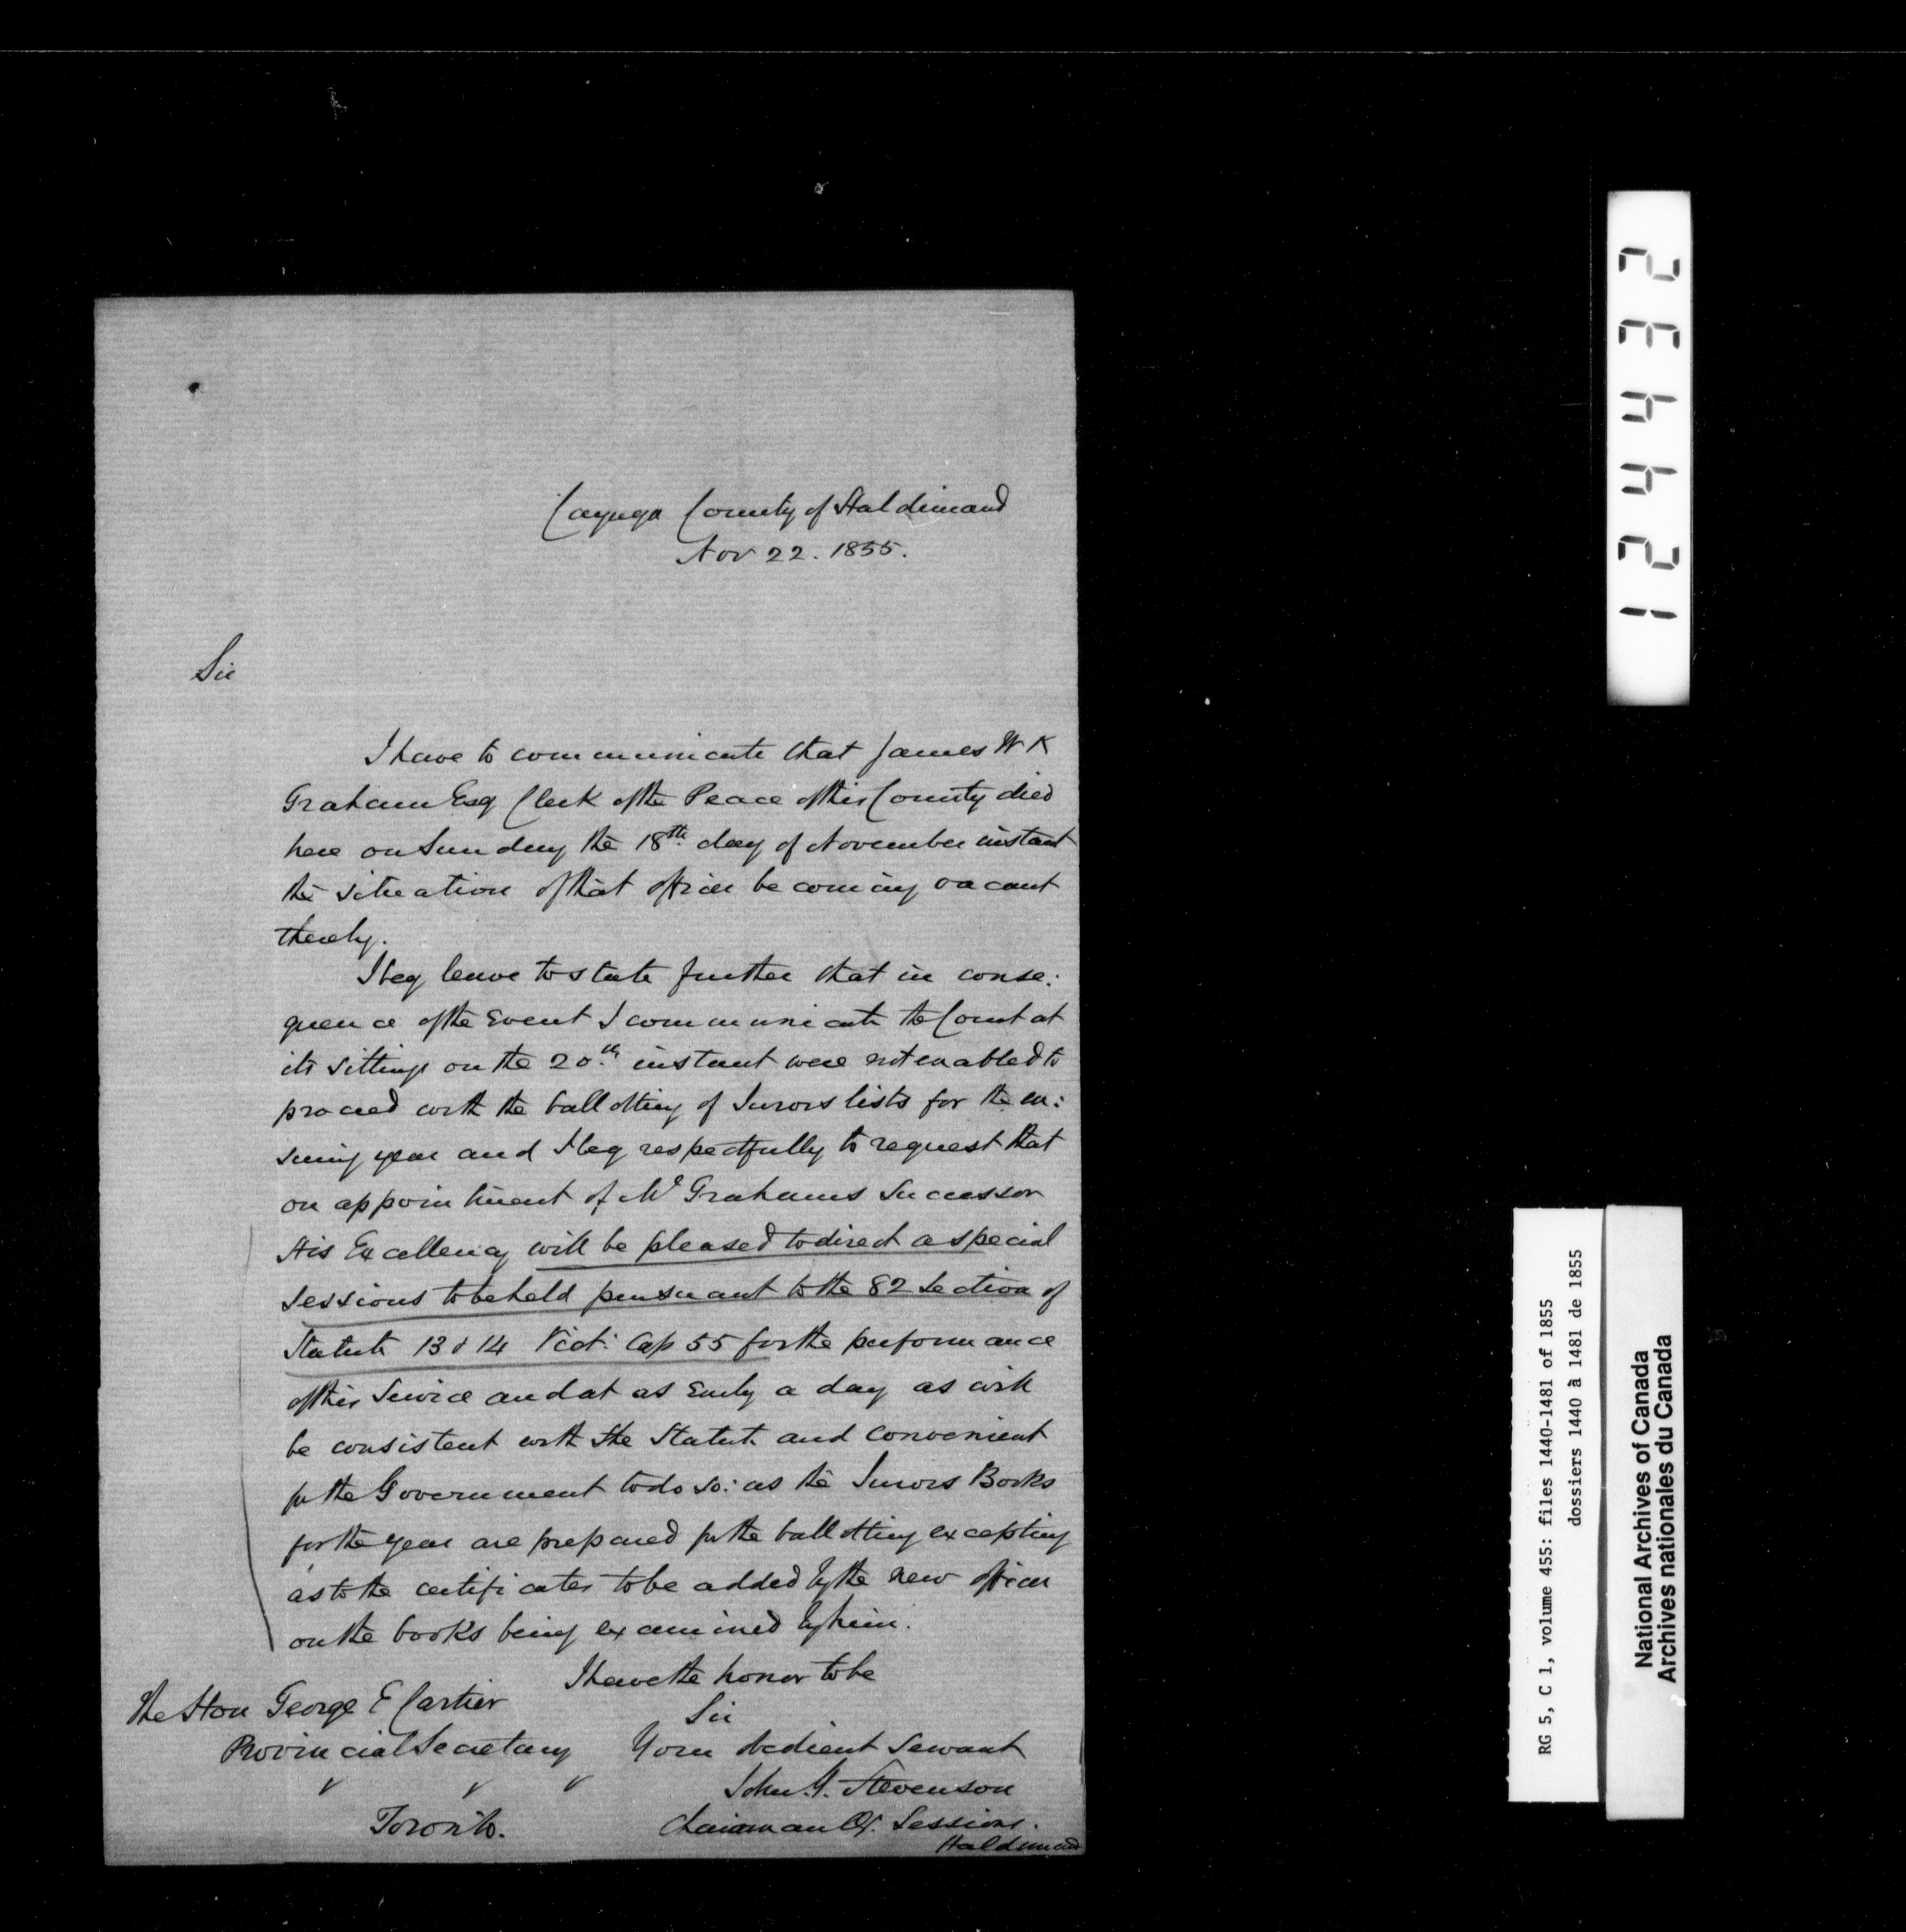 Cayuga County of Haldimand
Nov 22. 1855.
Sir
I have to communicate that James W K
Graham Esq Clerk of the Peace of this County died
here on Sunday the 18th. day of November instant
the situation of that office becoming vacant
thereby.
I beg leave to state further that in conse:
quence of the Event I communicate the Court at
its sittings on the 20.th instant were not enabled to
proceed with the ballotting of Jurors lists for the en:
suing year and I beg respectfully to request that
on appointment of Mr Grahams Successor
His Excellency will be pleased to direct a special
Sessions to be held pursuant to the 82 Section of
Statute 13 & 14 Vict: Cap 55 for the performance
of this Service and at as Early a day as will
be consistent with the Statute and convenient
for the Government to do so: as the Jurors Books
for the year are prepared for the ballotting excepting
as to the certificates to be added by the new officer
on the books being examined by him.
I have the honor to be
Sir
Your obedient Servant
John G. Stevenson
Chairman Qr. Sessions.
Haldimand
The Hon George E Cartier
Provincial Secretary
Toronto.
124432
RG 5, C 1, volume 455: files 1440-1481 of 1855
dossiers 1440 à 1481 de 1855
National Archives of Canada
Archives nationales du Canada